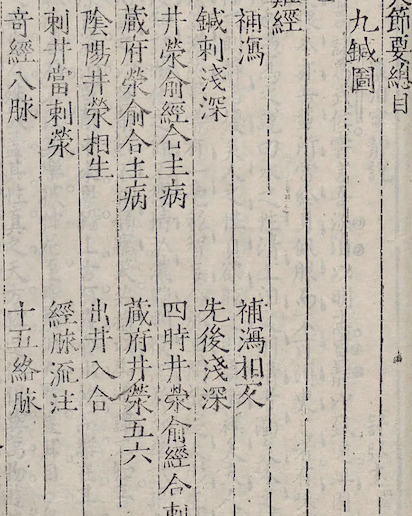 節要總目
九鍼圖
經
補瀉　補瀉相反
鍼刺淺深　先後淺深
井滎俞經合主病　四時井滎俞經合刺
藏府滎俞合主病　藏府井滎五六
陰陽井滎相生　出井入合
刺井當刺滎　經脉流注
奇經八脉　十五絡脉